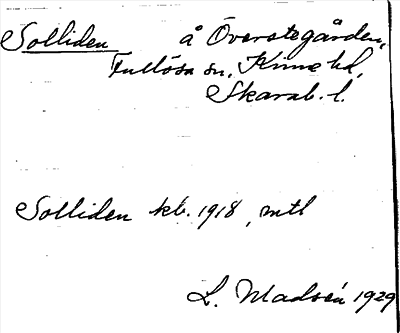 Solliden å Överstegården,
Fullösa sn, Kinne hd,
Skarab. l.
Solliden kb. 1918, mtl
L. Madsén 1929